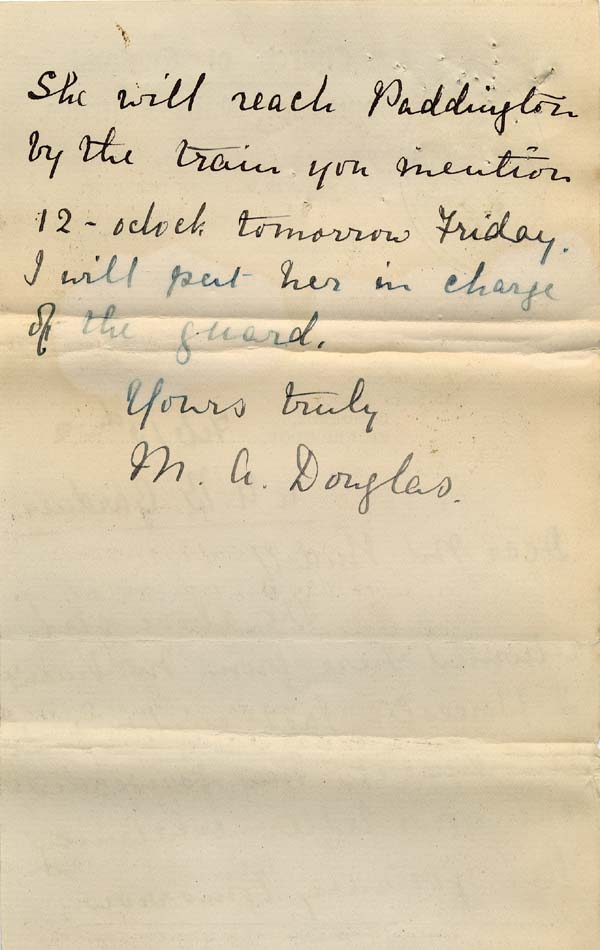 She will reach Paddington
by the train you mention
12 - oclock tomorrow Friday.
I will put her in charge
of the guard.
Yours truly
M. A. Douglas.